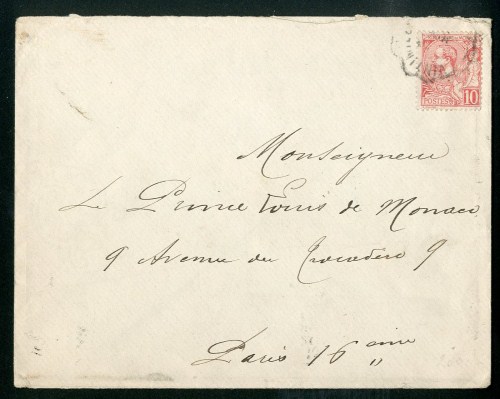 10
POSTES
Monseigneur
Le Prince Louis de Monaco
9 Avenue du Trocadéro 9
Paris 16 eme